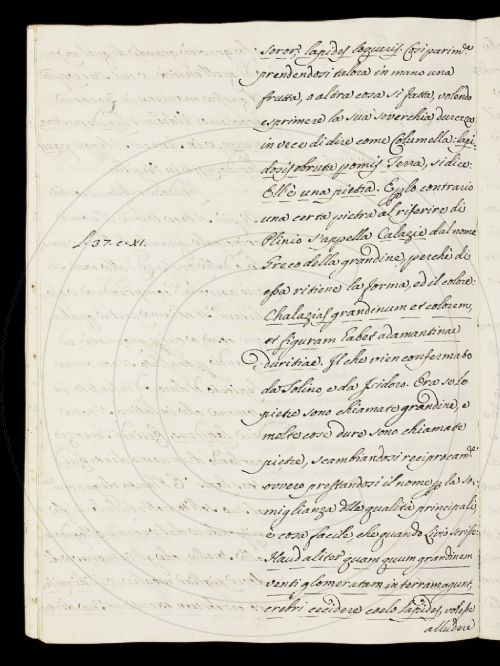 soror, lapides loqueris. Cosi parim.te
prendendosi talora in mano una
frutta, o altra cosa si fatta, volendo
esprimere la sua soverchia durezza
in vece di dire come Columella: lapi-
dosis obruta pomis Terra, si dice:
Ell'è una pietra. E p lo contrario
una certa pietra al riferire di
L. 37. c. XI.
Plinio s'appella Calazie dal nome
Greco della grandine, perchè di
essa ritiene la forma, ed il colore:
Chalazias grandinum et colorem,
et figuram habet adamantinae
duritiae. Il che vien confermato
da Solino, e da Isidoro. Ora se lo
pietre sono chiamate grandine, e
molte cose dure sono chiamate
pietre, scambiandosi reciprocam.te
ovvero prestandosi il nome p la so-
miglianza delle qualità principali,
è cosa facile che quando Livio scrisse
Haud aliter quam quum grandinem
venti glomeratam in terram agunt,
crebri cecidere caelo lapides, volesse
alludere